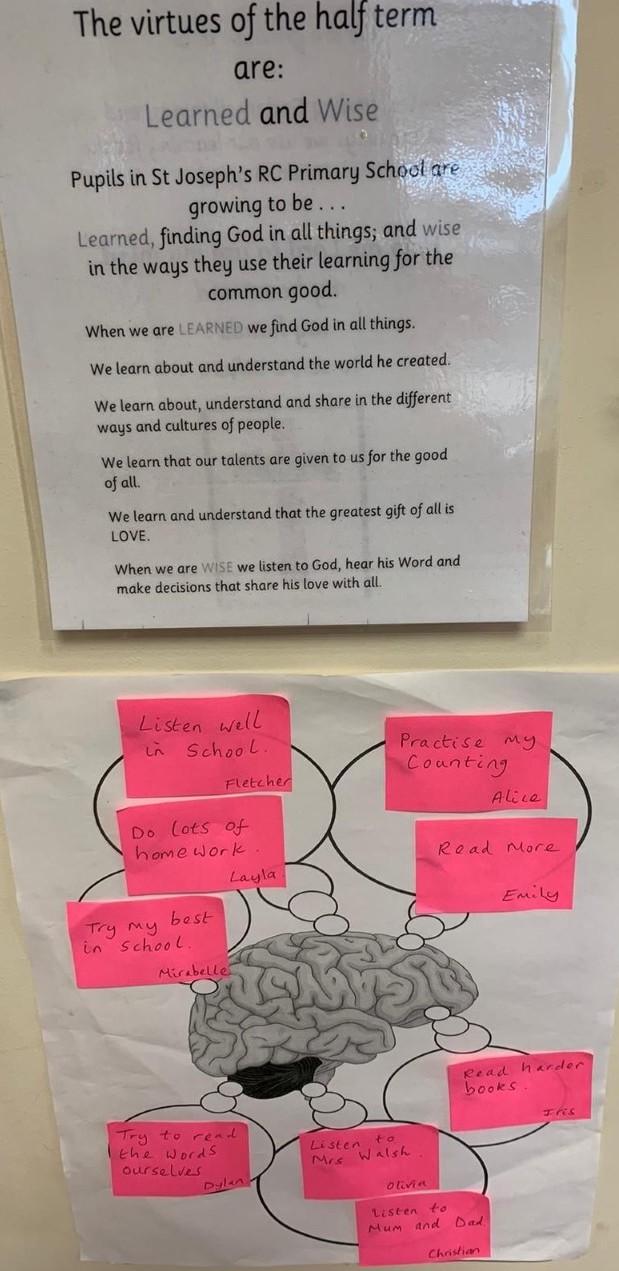 The virtues of the half term
are:
Learned and Wise
Pupils in St Joseph's RC Primary School are
growing to be . . .
Learned, finding God in all things; and wise
in the ways they use their learning for the
common good.
When we are LEARNED we find God in all things.
We learn about and understand the world he created.
We learn about, understand and share in the different
ways and cultures of people.
We learn that our talents are given to us for the good
of all.
We learn and understand that the greatest gift of all is
LOVE.
When we are WISE we listen to God, hear his Word and
make decisions that share his love with all.
Listen well
in School.
Fletcher
Do lots of
homework.
Layla
Try my best
in school.
Mirabelle
Practise my
Counting
Alice
Read More
Emily
Read harder
books.
Iris
Try to read
the words
ourselves
Dylan
Listen to
Mrs Walsh.
Olivia
Listen to
Mum and Dad
Christian